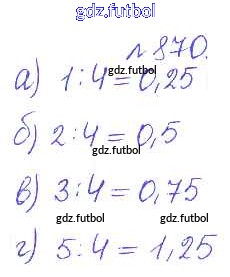 gdz.futbol
№870.
а) 1:4=0,25
gdz.futbol
б) 2:4=0,5
gdz.futbol
в) 3:4=0,75
gdz.futbol gdz.futbol
г) 5:4=1,25
gdz.futbol